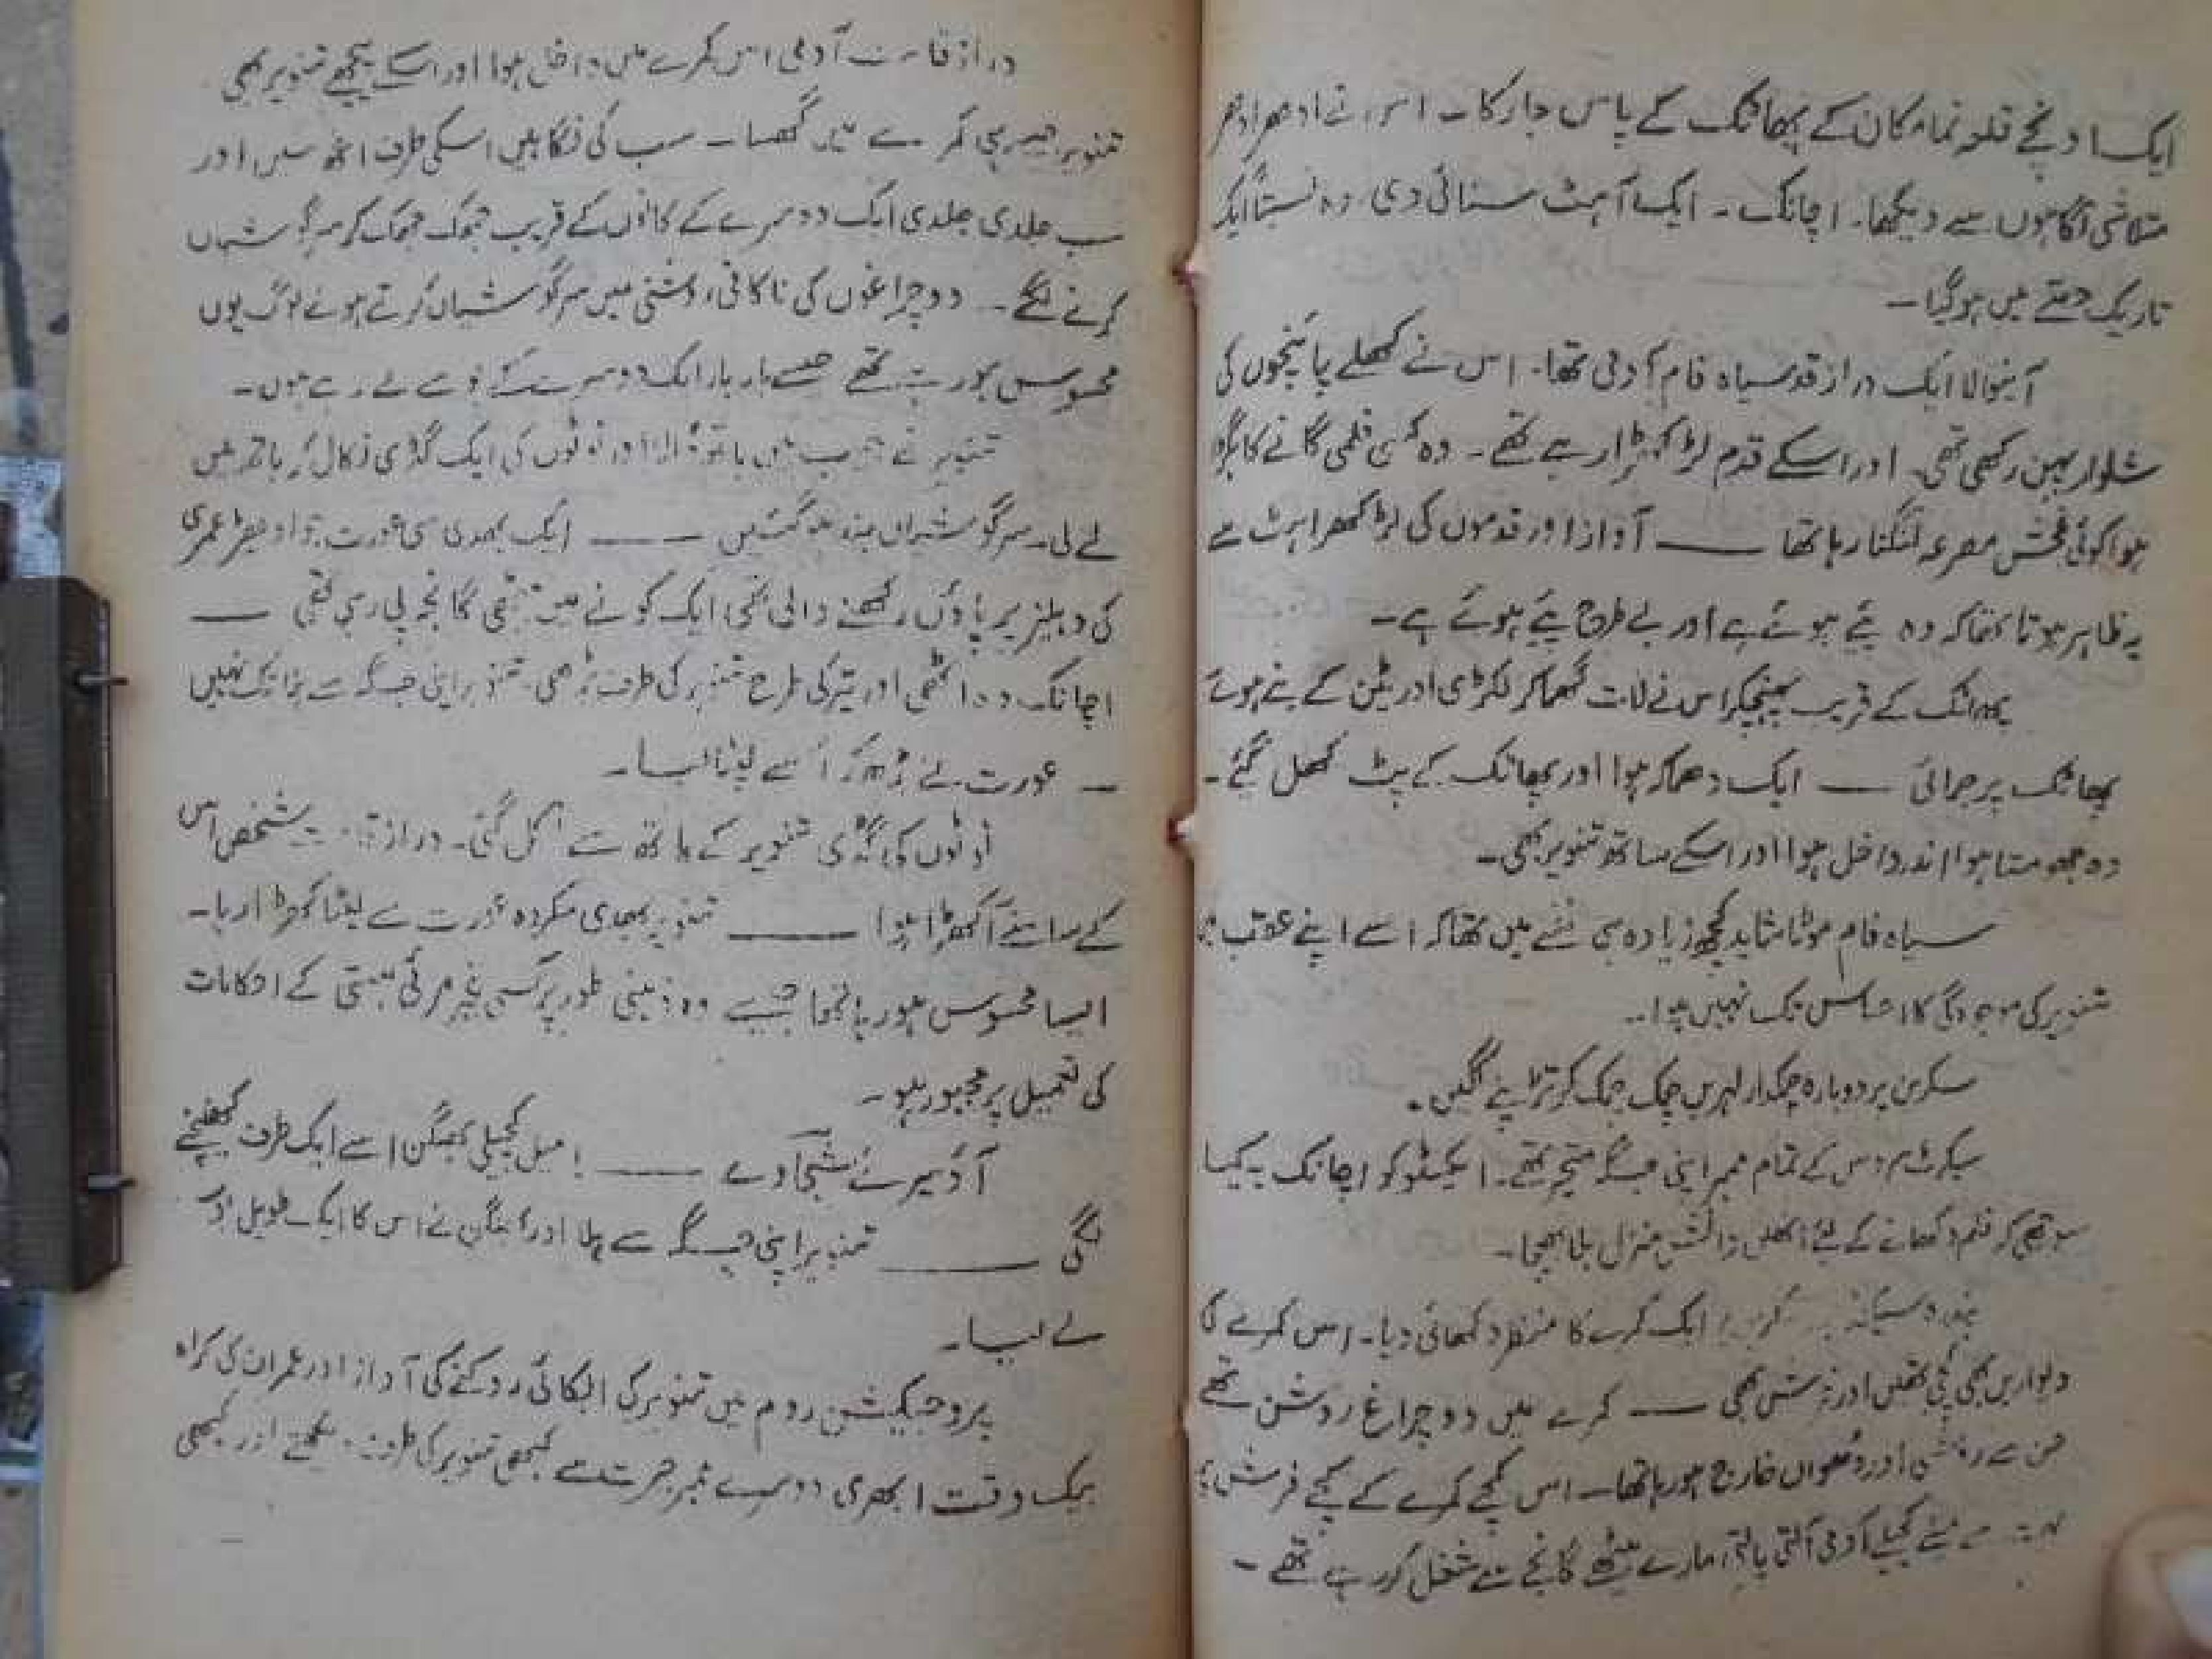 ایک اونچے قلعہ نما مکان کے پھاٹک کے پاس جا رکا۔ اس نے ادھر ادھر
متلاشی نگاہوں سے دیکھا۔ اچانک۔ ایک آہٹ سنائی دی وہ نسبتاً ایک
تاریک حصے میں ہوگیا۔
آنیوالا ایک دراز قد سیاہ فام آدمی تھا۔ اس نے کھلے پائنچوں کی
شلوار پہن رکھی تھی۔ اور اسکے قدم لڑکھڑا رہے تھے۔ وہ کسی فلمی گانے کا بگڑا
ہوا کوئی فحش مصرعہ گنگنا رہا تھا ـــــ آواز اور قدموں کی لڑکھڑاہٹ سے
یہ ظاہر ہوتا تھا کہ وہ پئے ہوئے ہے اور بے طرح پئے ہوئے ہے۔
پھاٹک کے قریب پہنچکر اس نے لات گھما کر لکڑی اور ٹین کے بنے ہوئے
پھاٹک پر جمائی ـــــ ایک دھماکہ ہوا اور پھاٹک کے پٹ کھل گئے۔
وہ جھومتا ہوا اندر داخل ہوا اور اسکے ساتھ تنویر بھی۔
سیاہ فام موٹا شاید کچھ زیادہ ہی نشے میں تھا کہ اسے اپنے عقب میں
تنویر کی موجودگی کا احساس تک نہیں ہوا۔
سکرین پر دوبارہ چمکدار لہریں چمک چمک کر تڑپنے لگیں۔
سیکرٹ سروس کے تمام ممبر اپنی جگہ متحیر تھے۔ ایکسٹو کو اچانک یہ کیا
سوجھی کہ فلم دکھانے کے لئے انھیں دانش منزل بلا بھیجا۔
ایک کمرے کا منظر دکھائی دیا۔ اس کمرے کی
دیواریں بھی کچی تھیں اور فرش بھی ـــــ کمرے میں دو چراغ روشن تھے
جن سے روشنی اور دھواں خارج ہو رہا تھا۔ اس کچے کمرے کے کچے فرش پر
بہت سے میلے کچیلے آدمی آلتی پالتی مارے بیٹھے گانجے سے شغل کر رہے تھے۔
دراز قامت آدمی اس کمرے میں داخل ہوا اور اسکے پیچھے تنویر بھی
تنویر جیسے ہی کمرے میں گھسا۔ سب کی نگاہیں اسکی طرف اٹھ سیں اور
سب جلدی جلدی ایک دوسرے کے کانوں کے قریب جھک جھک کر سرگوشیاں
کرنے لگے۔ دو چراغوں کی ناکافی روشنی میں سرگوشیاں کرتے ہوئے لوگ یوں
محسوس ہو رہے تھے جیسے بار بار ایک دوسرے کے بوسے لے رہے ہوں۔
تنویر نے جیب میں ہاتھ ڈالا اور نوٹوں کی ایک گڈی نکال کر ہاتھ میں
لے لی۔ سرگوشیاں بند ہو گئیں ـــــ ایک بھدی سی عورت جو ادھیڑ عمری
کی دہلیز پر پاؤں رکھنے والی تھی ایک کونے میں بیٹھی گانجہ پی رہی تھی ـــــ
اچانک وہ اٹھی اور تیر کی طرح تنویر کی طرف بڑھی۔ تنویر اپنی جگہ سے ہلا تک نہیں
ـ عورت نے بڑھ کر اسے لپٹا لیا۔
نوٹوں کی گڈی تنویر کے ہاتھ سے نکل گئی۔ دراز قامت شخص اس
کے سامنے آ کھڑا ہوا ـــــ تنویر بھدی مکروہ عورت سے لپٹا کھڑا رہا۔
ایسا محسوس ہو رہا تھا جیسے وہ ذہنی طور پر کسی غیر مرئی ہستی کے احکامات
کی تعمیل پر مجبور ہو۔
آؤ میرے شجاوے ـــــ ! میل کچیلی بھنگن اسے ایک طرف کھینچنے
لگی ـــــ تنویر اپنی جگہ سے ہلا اور بھنگن نے اس کا ایک طویل بوسہ
لے لیا۔
پروجیکشن روم میں تنویر کی ابکائی روکنے کی آواز اور عمران کی کراہ
بیک وقت ابھری دوسرے ممبر حیرت سے کبھی تنویر کی طرف دیکھتے اور کبھی